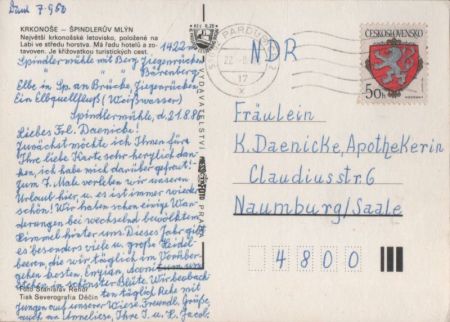 Dank 7.9.80
KRKONOŠE – ŠPINDLERŮV MLÝN
Největší krkonošské letovisko, položené na
Labi ve středu horstva. Má řadu hotelů a zo-
tavoven. Je křižovatkou turistických cest.
1422 m
Spindlermühle mit Berg Ziegenrücken
" " " Bärenberg
Elbe in Sp. an Brücke Ziegenrücken
Ein Elbquellfluß (Weißwasser)
Spindlermühle, d. 21.8.80
Liebes Frl. Daenicke!
Zunächst möchte ich Ihnen für
Ihre liebe Karte sehr herzlich dan-
ken, ich habe mich darüber gefreut!
Zum 7. Male verleben wir unseren
Urlaub hier u. es ist immer wieder
schön! Wir haben schon einige Wan-
derungen bei wechselnd bewölktem
Himmel hinter uns. Dieses Jahr gibt
es besonders viele u. große Heidel-
beeren, die wir täglich im Vorüber-
gehen kosten, Enzian, Aconitum usw.
stehen in schönster Blüte. Wir beobach-
ten täglich Rehe mit
Jungen auf unserer Wiese. Freundl. Grüße,
auch an Anneliese, Ihre I. u. E. Jacob.
Foto Stanislav
Tisk Severografia Děčín
VYDAVATELSTVÍ
PRA
PARDUB
22.-8.
17
x
ČESKOSLOVENSKO
50h
NDR
Fräulein
K. Daenicke, Apothekerin
Claudiusstr. 6
Naumburg/Saale
4800